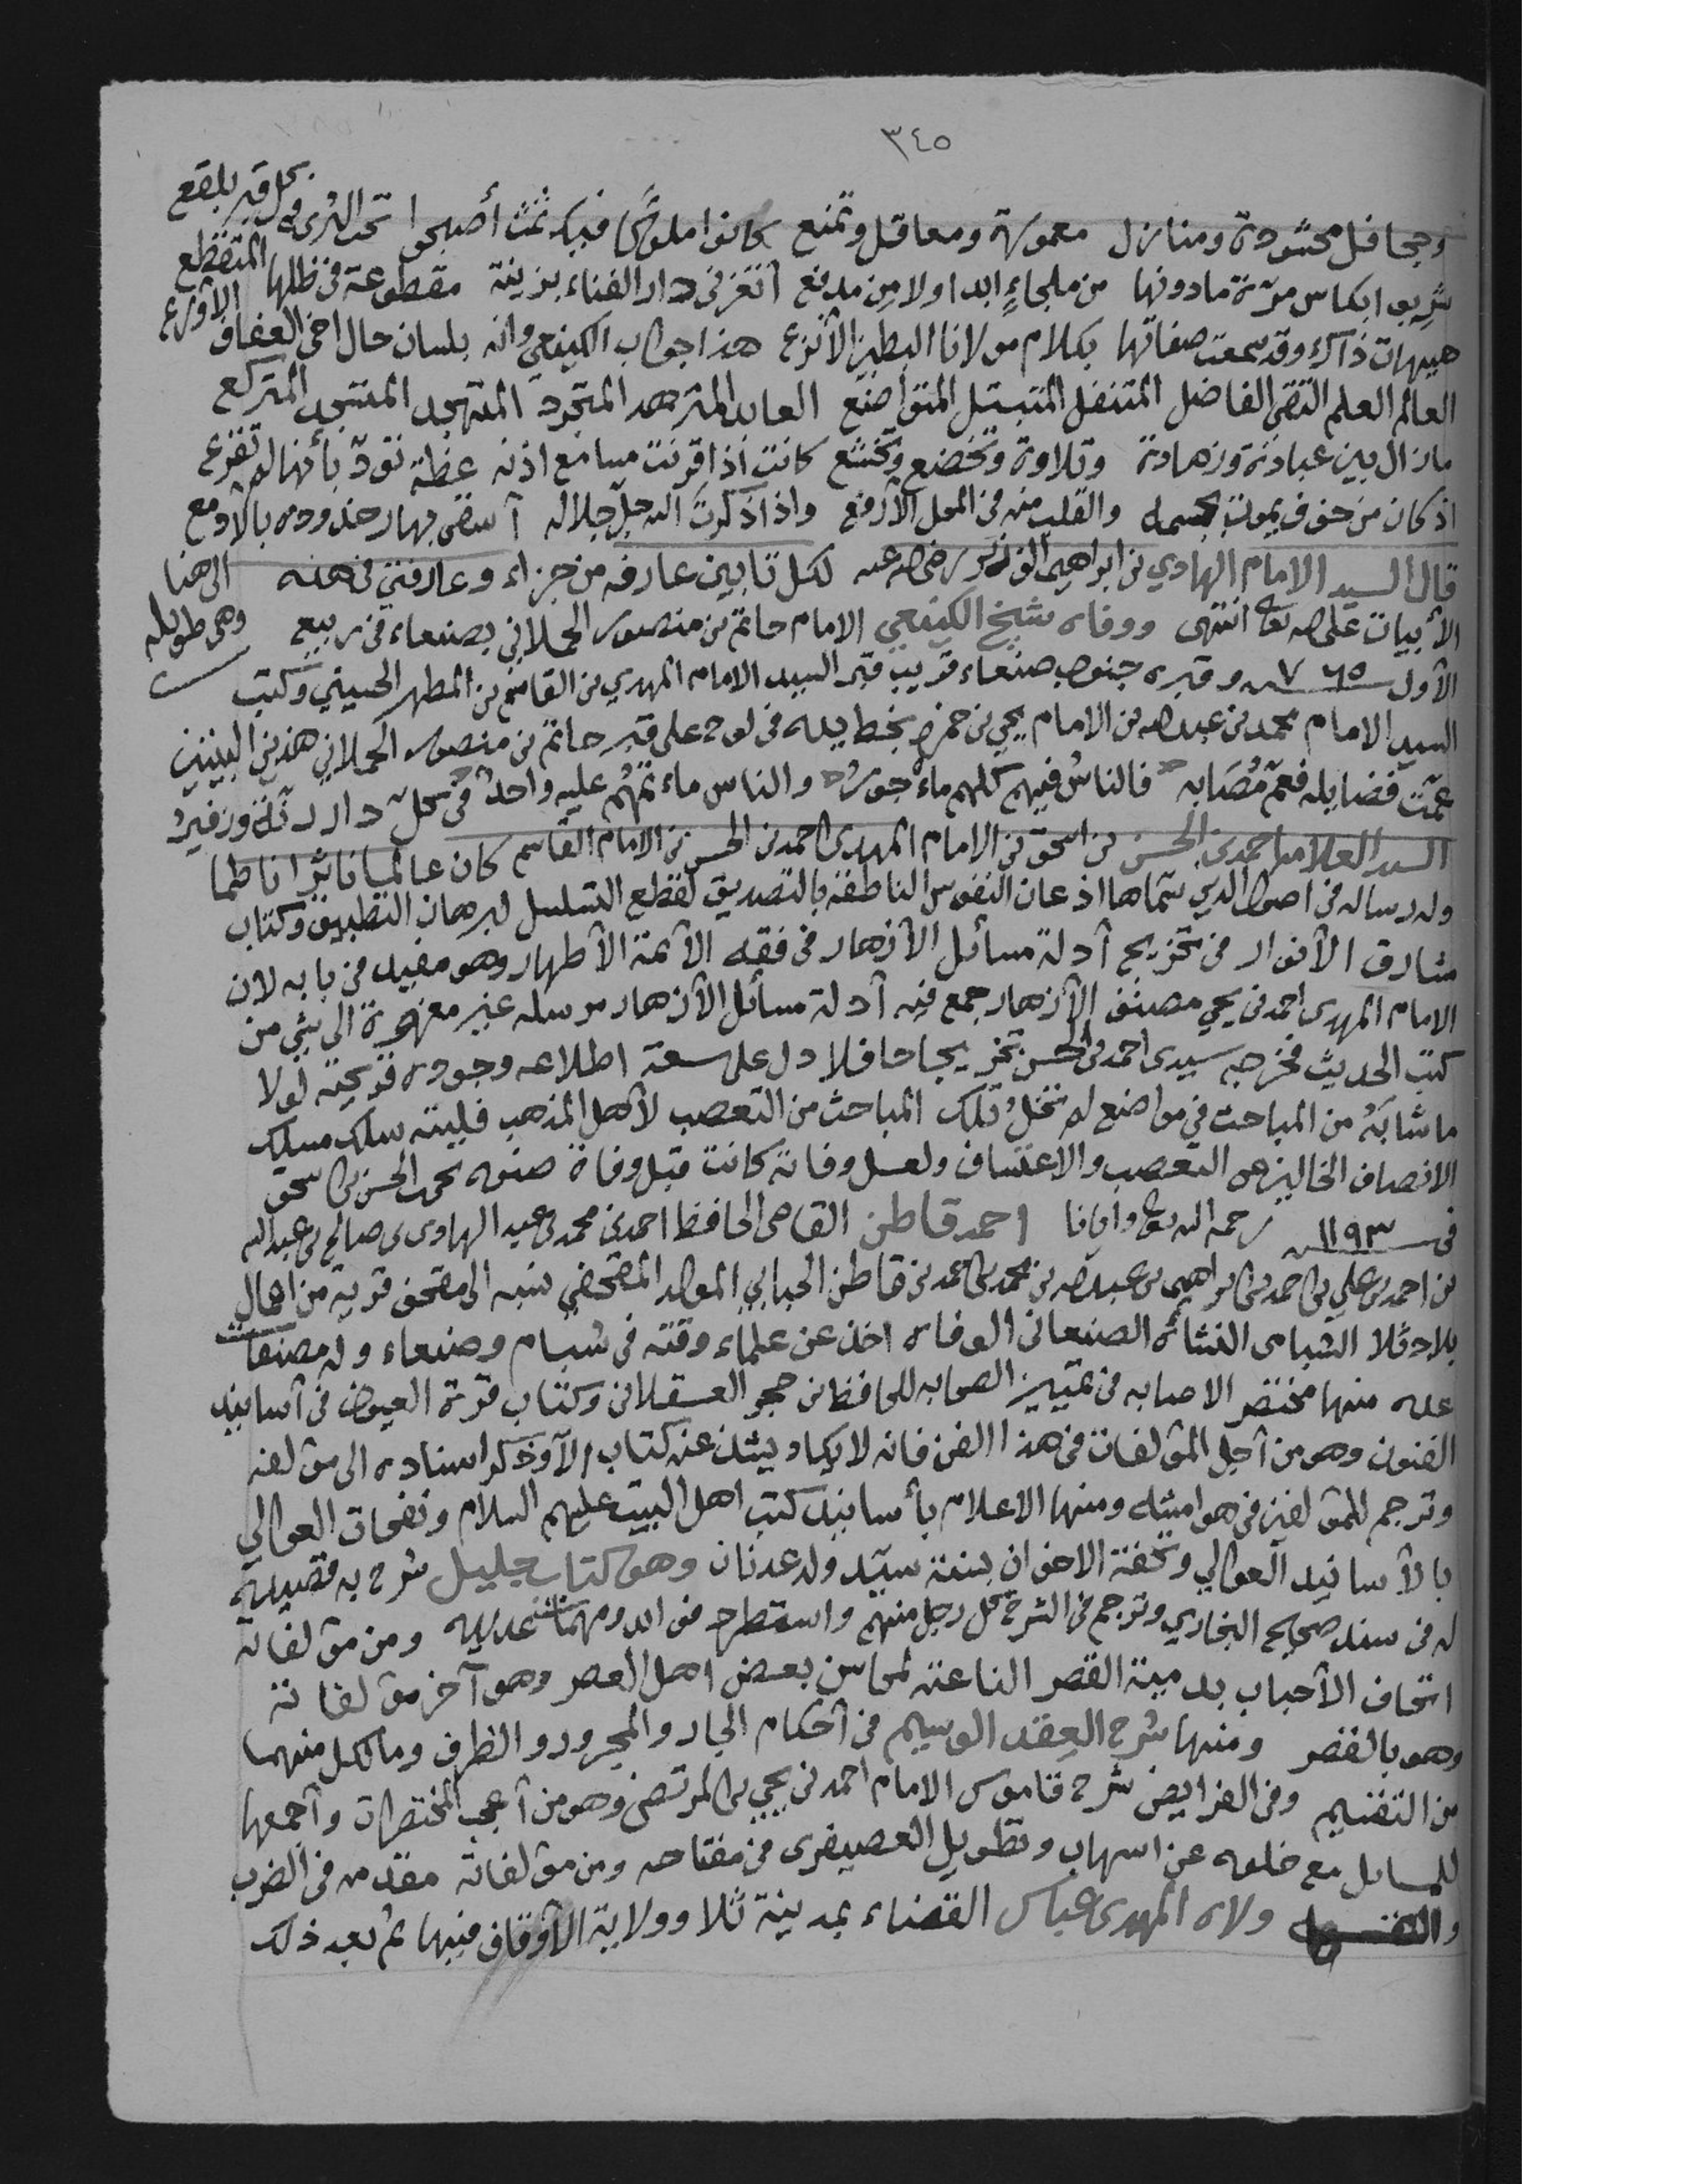 ٣٤٥
وجحافل محشودة ومنازل معمورة ومعاقل وتمنع كانوا ملوكا فيك ثمت أصبحوا تحت الثرى في كل قبر بلقع
شربوا بكاس مرّة مادونها من ملجاءٍ ابدا ولا من مدفع أتغز في دار الفناء بزينة مقطوعة في ظلها المتقطع
هيهات ذاك وقد سمعت صفاتها بكلام مولانا البطين الأنزع هذا جواب الكينعي وانه بلسان حال اخي العفاف الأورع
العالم العلم التقي الفاضل المتنفل المتبتل المتواضع العابد المتزهد المتجرد المتهجد المتركع
مازال بين عبادة وزهادة وتلاوة وتخضع وتخشع كانت اذا قرنت مسامع اذنه عظة تودّ بأنها لم تقرع
اذ كان من خوف يموت بجسمه والقلب منه في المحل الأرفع واذا ذكرت الله جل جلاله أسقى بها رخدوده بالأدمع
قال السيد الامام الهادي بن ابراهيم الوزير رضي الله عنه لكل تأبين عارفه من جزاء وعارفتي في هذه
الأبيات على الله تعالى انتهى ووفاه شيخ الكينعي الامام حاتم بن منصور الحملاني بصنعاء في ربيع
الى هنا وهي طويله
الأول سنة ٧٦٥ وقبره جنوب صنعاء قريب قبر السيد الامام المهدي بن القاسم بن المطهر الحسيني وكتب
السيد الامام محمد بن عبدالله بن الامام يحيى بن حمزه بخط يده في لوح على قبر حاتم بن منصور الحملاني هذين البيتين
عمّت فضايله فعمّ مُصَابه فالناس فيهم كلهم ماءجورُ والناس ماءتمهُم عليه واحدٌ في كل دار رنّة وزفيرُ
السيد العلامه احمد بن الحسن بن اسحق بن الامام المهدي احمد بن الحسن بن الامام القاسم كان عالما ناثرا ناظما
وله رساله في اصول الدين سماها اذعان النفوس الناطقة بالتصديق لقطع التسلسل ببرهان التطبيق وكتاب
مشارق الأنوار في تخريج أدلة مسائل الأزهار في فقه الأئمة الأطهار وهو مفيد في بابه لان
الامام المهدي احمد بن يحيى مصنف الأزهار جمع فيه أدلة مسأئل الأزهار مرسله غير معزوة الى شي من
كتب الحديث فخرجه سيدي احمد بن الحسن تخريجا حافلا دل على سعة اطلاعه وجوده قريحته لولا
ما شابَهُ من المباحث في مواضع لم تخلُ تلك المباحث من التعصب لأهل المذهب فليته سلك مسلك
الانصاف الخالي عن التعصب والاعتساف ولعل وفاته كانت قبل وفاة صنوه محمد بن الحسن بن اسحق
في سنة ١١٩٣ رحمه الله تعالى وايانا احمد قاطن القاضي الحافظ احمد بن محمد بن عبد الهادي بن صالح بن عبدالله
بن احمد بن علي بن احمد بن ابراهيم بن عبدالله بن محمد بن احمد بن قاطن الحبابي المولد المقحفي نسبه الى مقحف قرية من اعمال
بلاد ثلا الشبامي النشأة الصنعاني الوفاه اخذ عن علماء وقته في شبام وصنعاء وله مصنفات
عده منها مختصر الاصابه في تمييز الصحابه للحافظ بن حجر العسقلاني وكتاب قرة العيون في أسانيد
الفنون وهو من أجل المؤلفات في هذا الفن فانه لا يكاد يشذ عنه كتاب الا وذكر اسناده الى مؤلفه
وترجم للمؤلفين في هوامشه ومنها الاعلام بأسانيد كتب اهل البيت عليهم السلام ونفحات العوالي
بالأسانيد العوالي وتحفة الاخوان بسند سيّد ولد عدنان وهو كتاب جليل شرح به قصيدة
له في سند صحيح البخاري وترجم في الشرح لكل رجل منهم واستطرد فوايد ومهمات عديده ومن مؤلفاته
اتحاف الأحباب بدمية القصر الناعتة لمحاسن بعض اهل العصر وهو آخر مؤلفاته
وهو بالقصر ومنها شرح العِقد الوسيم في أحكام الجار والمجرور والظرف وما لكل منهما
من التقسيم وفي الفرايض شرح قاموس الامام احمد بن يحيى بن المرتضى وهو من أعجب المختصرات وأجمعها
للمسايل مع خلوه عن اسهاب وتطويل العصيفري في مفتاحه ومن مؤلفاته مقدمه في الضرب
ولاه المهدي عباس القضاء بمدينة ثلا وولاية الأوقاف فيها ثم بعد ذلك